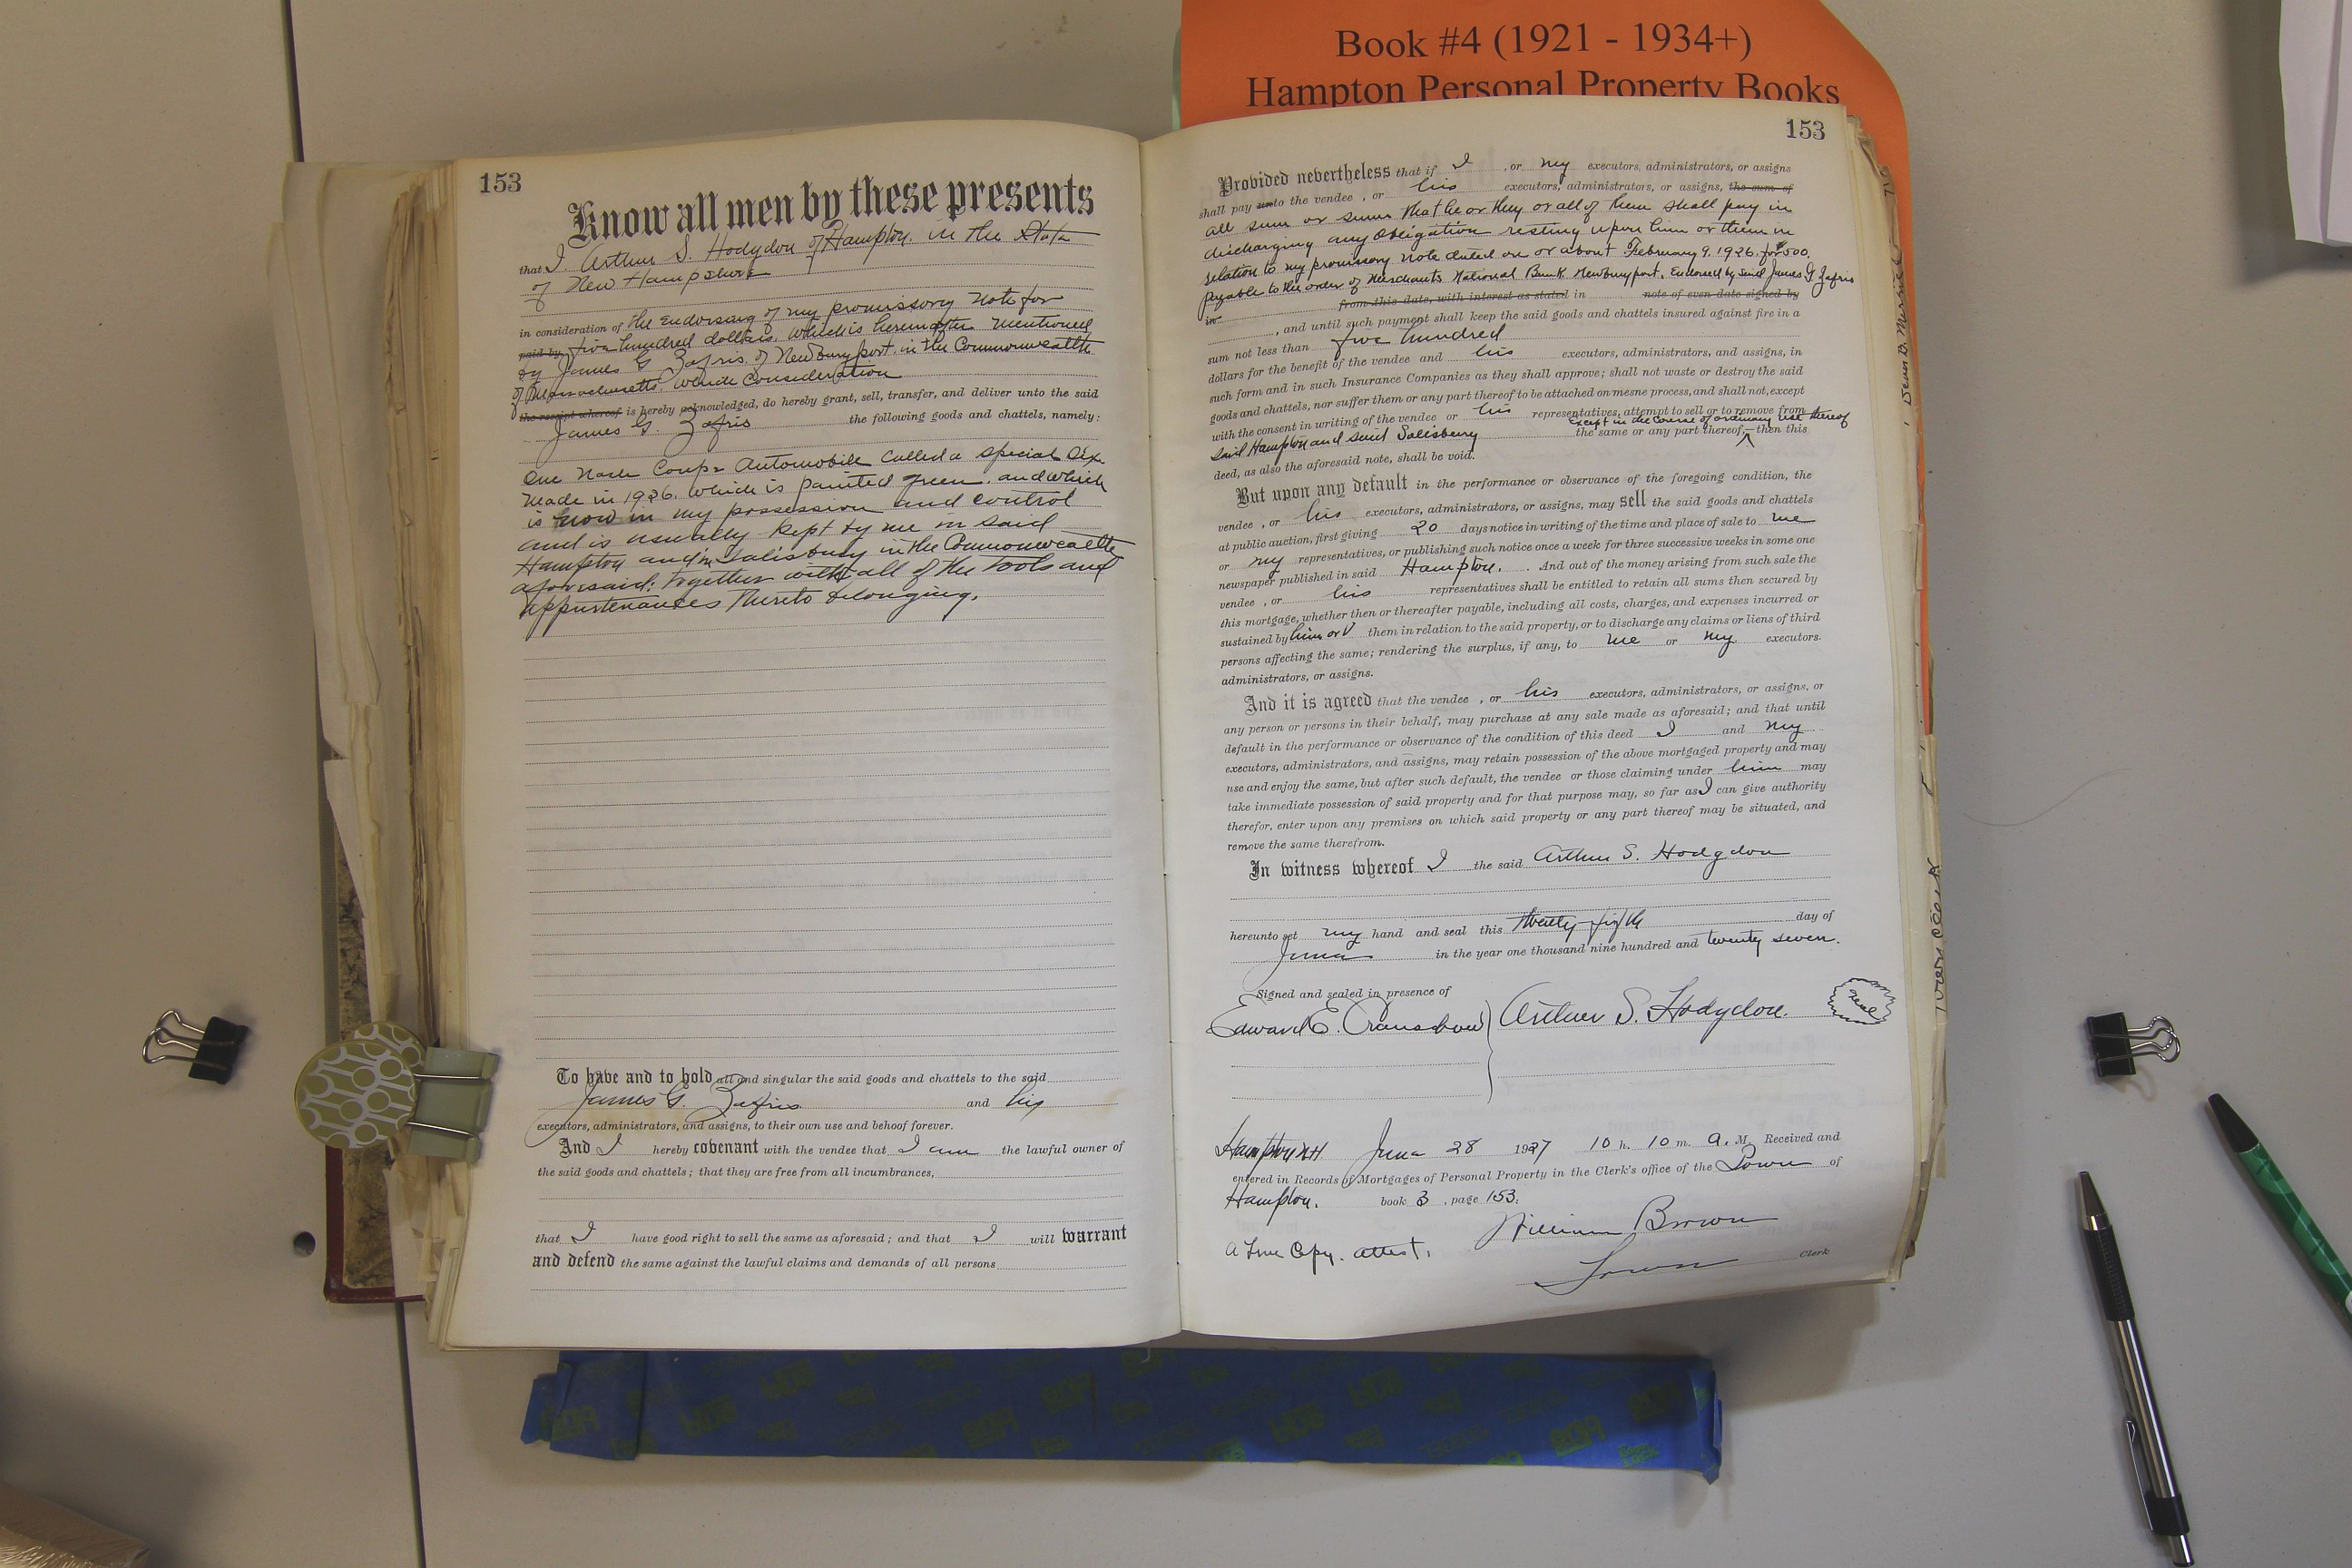 Book #4 (1921 - 1934+)
Hampton Personal Property Books
153
Know all men by these presents
that I. Arthur S. Hodgdon of Hampton. in the State
of New Hampshire
in consideration of the Endorsing of my promissory note for
paid by five hundred dollars. which is hereinafter mentioned
by James G Zafris. of Newburyport. in the Commonwealth
of Massachusetts. whide Consideration
the receipt whereof is hereby acknowledged, do hereby grant, sell, transfer, and deliver unto the said
James G. Zafris the following goods and chattels, namely:
One Nash Coupe Automobile called a special Six
made in 1926. which is painted green. and which
is now in my possession and control
and is usually kept by me in said
Hampton and in Salisbury in the Commonwealth
aforesaid: together with all of the tools and
appurtenances thereto belonging.
To have and to hold all and singular the said goods and chattels to the said
James G. Zafris and his
executors, administrators, and assigns, to their own use and behoof forever.
And I hereby covenant with the vendee that I am the lawful owner of
the said goods and chattels; that they are free from all incumbrances,
that I have good right to sell the same as aforesaid; and that I will warrant
and defend the same against the lawful claims and demands of all persons
153
Provided nevertheless that if I , or my executors, administrators, or assigns
shall pay unto the vendee , or his executors, administrators, or assigns, the sum of
all sum or sums that he or they or all of them shall pay in
discharging any obligation resting upon him or them in
relation to my promissory note dated on or about February 9. 1926. for $500.
payable to the order of Merchants National Bank Newburyport. Endorsed by said James G Zafris
from this date, with interest as stated in note of even date signed by
in
, and until such payment shall keep the said goods and chattels insured against fire in a
sum not less than five hundred
dollars for the benefit of the vendee and his executors, administrators, and assigns, in
such form and in such Insurance Companies as they shall approve; shall not waste or destroy the said
goods and chattels, nor suffer them or any part thereof to be attached on mesne process, and shall not, except
with the consent in writing of the vendee or his representatives, attempt to sell or to remove from
except in the course of ordinary use thereof
said Hampton and said Salisbury the same or any part thereof,—then this
deed, as also the aforesaid note, shall be void.
But upon any default in the performance or observance of the foregoing condition, the
vendee , or his executors, administrators, or assigns, may sell the said goods and chattels
at public auction, first giving 20 days notice in writing of the time and place of sale to me
or my representatives, or publishing such notice once a week for three successive weeks in some one
newspaper published in said Hampton. . And out of the money arising from such sale the
vendee , or his representatives shall be entitled to retain all sums then secured by
this mortgage, whether then or thereafter payable, including all costs, charges, and expenses incurred or
sustained by him or them in relation to the said property, or to discharge any claims or liens of third
persons affecting the same; rendering the surplus, if any, to me or my executors.
administrators, or assigns.
And it is agreed that the vendee , or his executors, administrators, or assigns, or
any person or persons in their behalf, may purchase at any sale made as aforesaid; and that until
default in the performance or observance of the condition of this deed I and my
executors, administrators, and assigns, may retain possession of the above mortgaged property and may
use and enjoy the same, but after such default, the vendee or those claiming under him may
take immediate possession of said property and for that purpose may, so far as I can give authority
therefor, enter upon any premises on which said property or any part thereof may be situated, and
remove the same therefrom.
In witness whereof I the said Arthur S. Hodgdon
hereunto set my hand and seal this twenty-fifth day of
June in the year one thousand nine hundred and twenty seven.
Signed and sealed in presence of
Edward E. Arthur S. Hodgdon. Seal
Hampton N.H. June 28 1927 10 h. 10 m. a. M. Received and
entered in Records of Mortgages of Personal Property in the Clerk's office of the Town of
Hampton. book 3 , page 153.
William Brown
A True Copy. attest.
Town Clerk